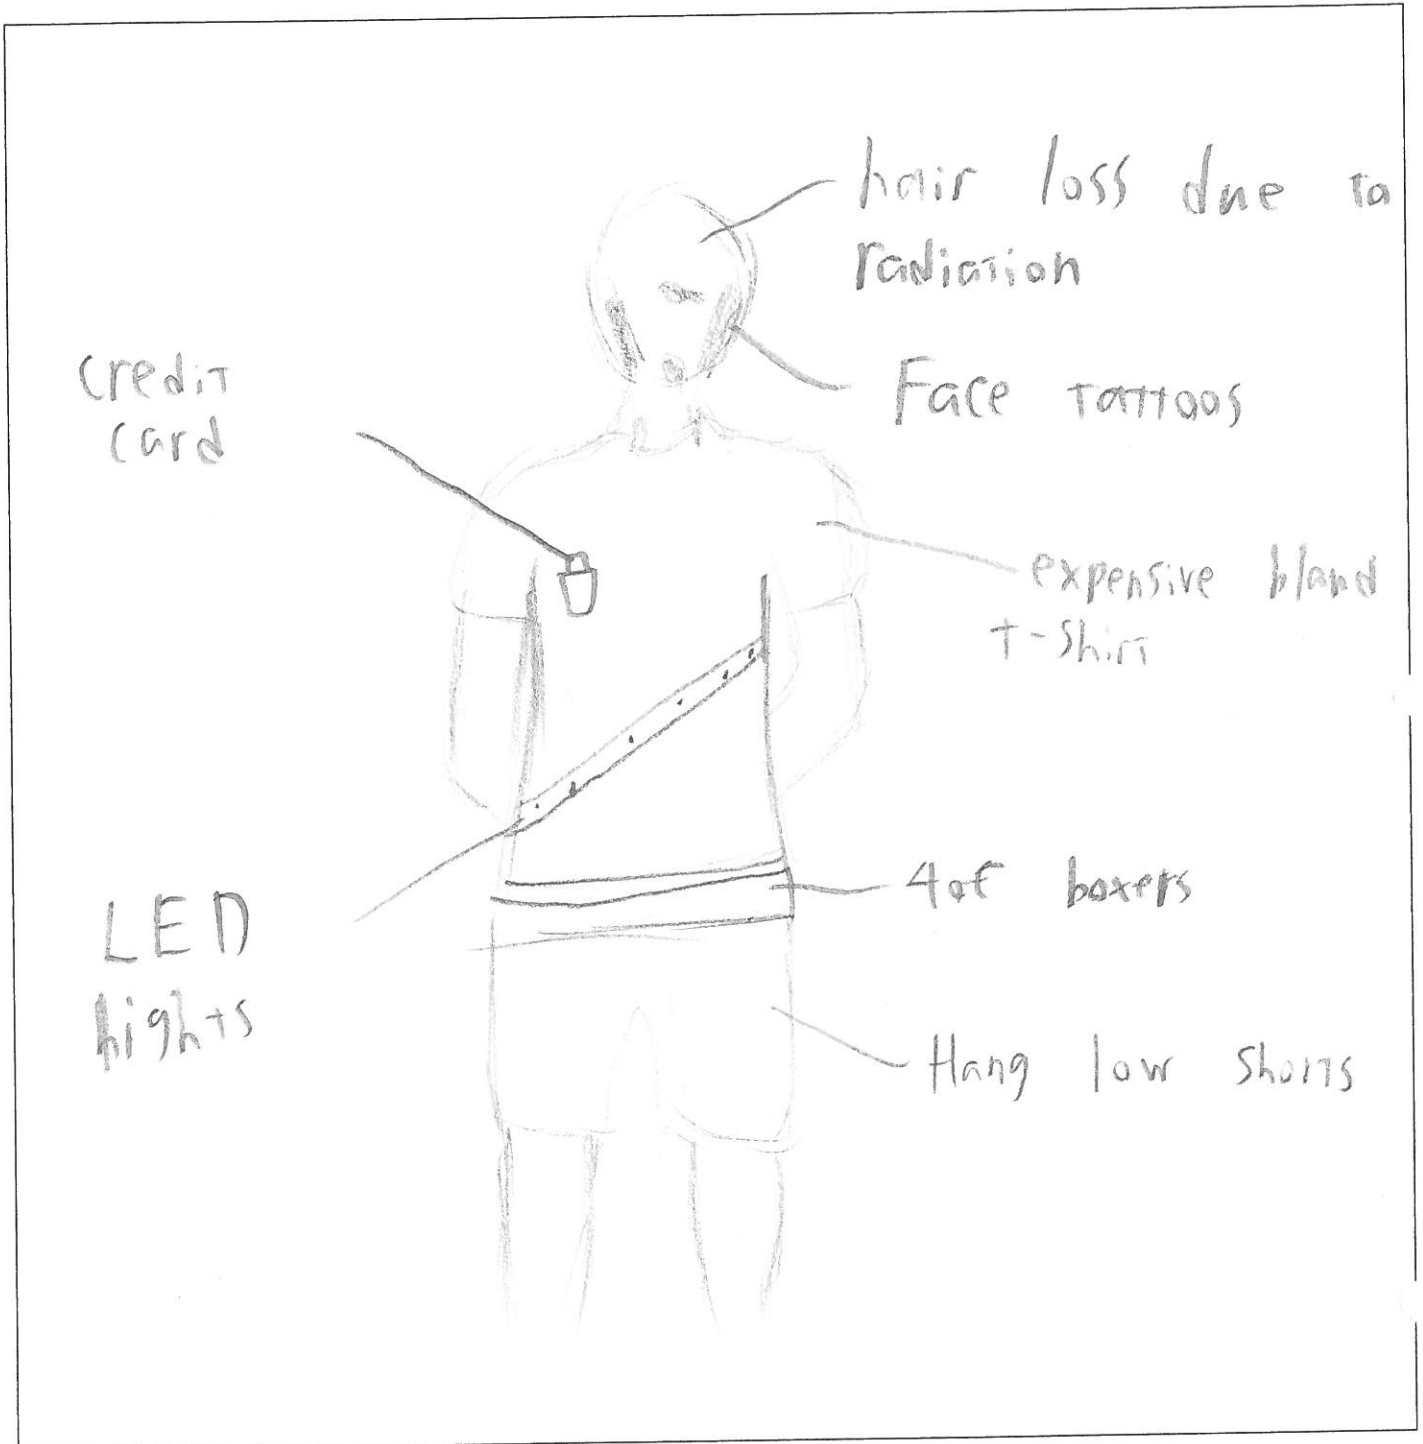 hair loss due to
radiation
Face tattoos
credit
card
expensive bland
t-shirt
4 of boxers
LED
lights
Hang low shorts